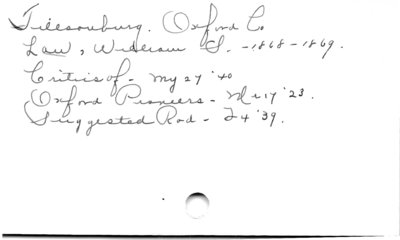 Tillsonburg. Oxford Co
Law, William S. - 1868-1869.
Critics of - My 27 '40
Oxford Pioneers - Mr 17 '23.
Suggested Rod - F 4 '39.